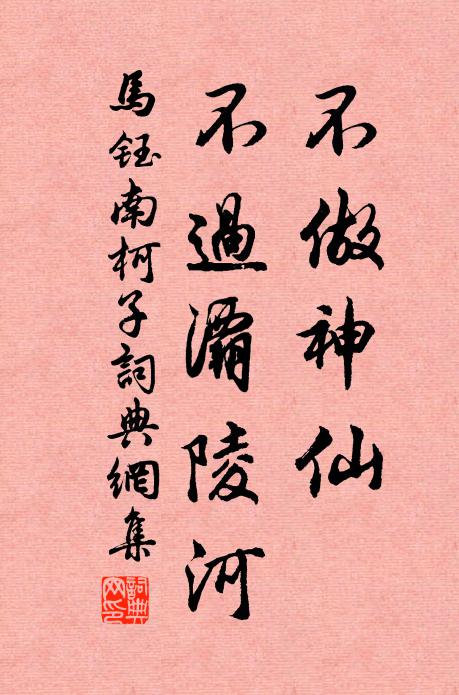 不做神仙
不過灞陵河
馬鈺南柯子詞典網集
詞典網印